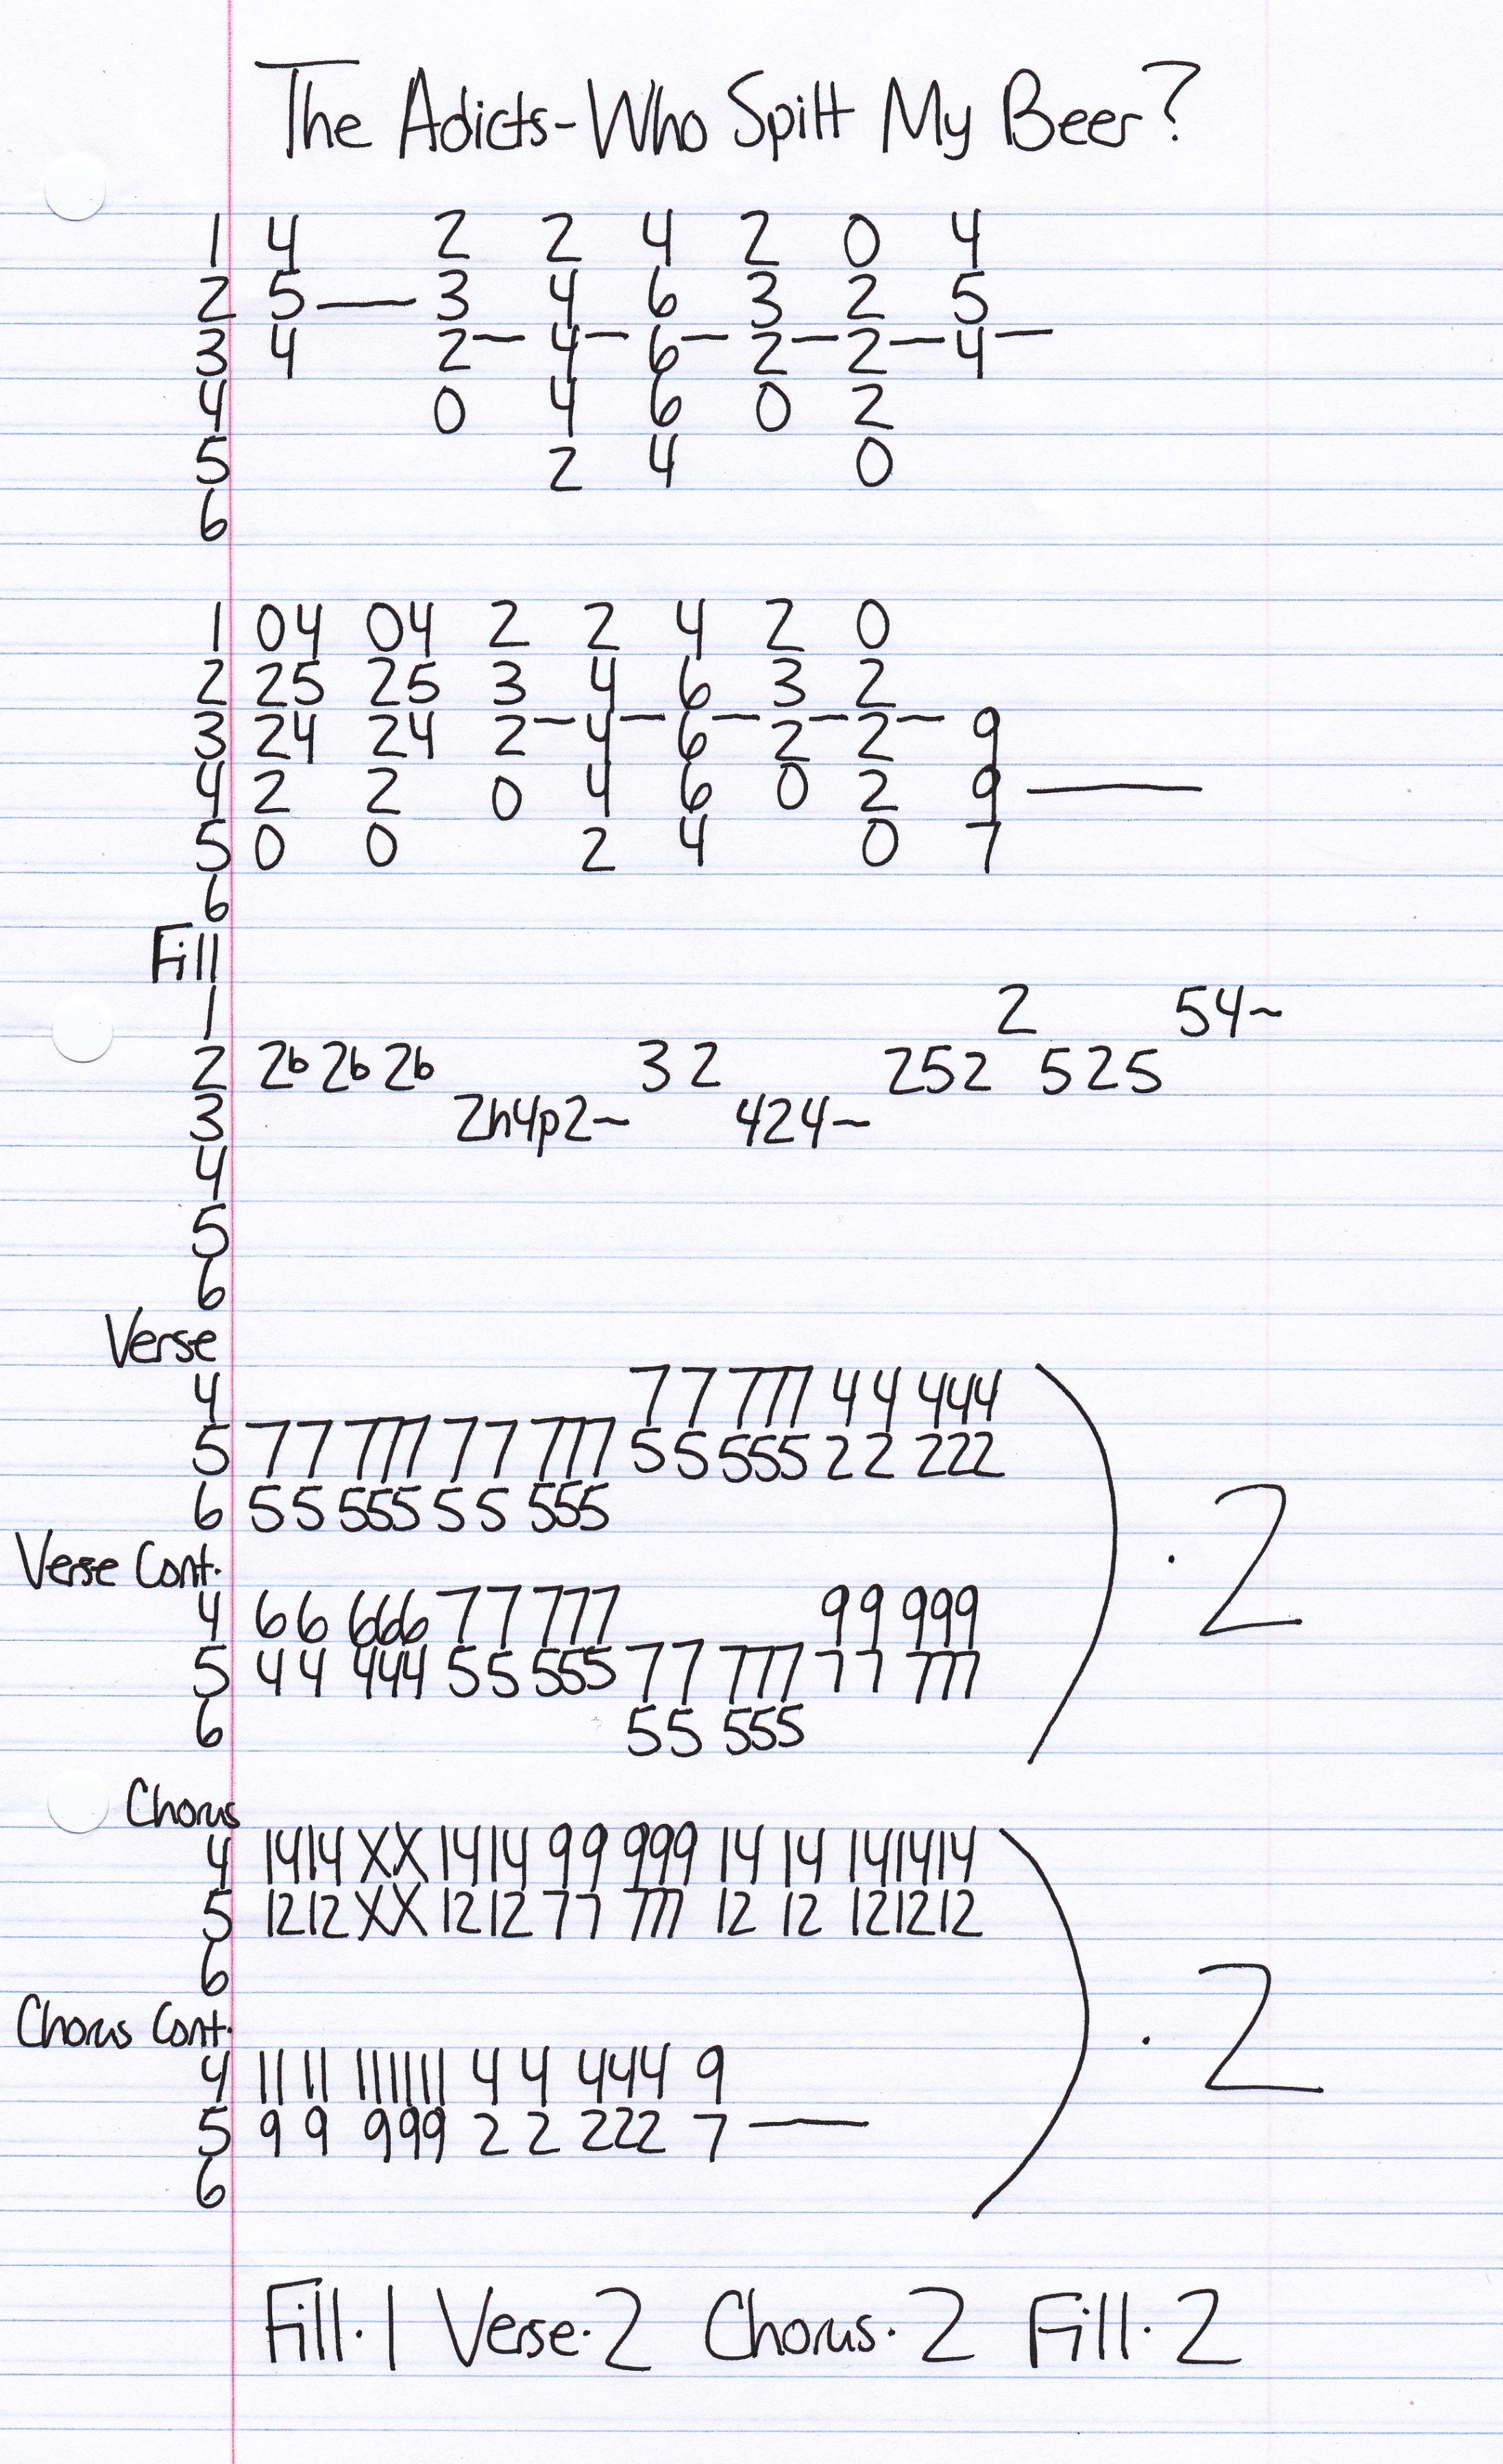 The Adicts-Who Spilt My Beer?
1 4 2 2 4 2 0 4
2 5 — 3 4 6 3 2 5
3 4 2 — 4 — 6 — 2 — 2 — 4 —
4 0 4 6 0 2
5 2 4 0
6
1 04 04 2 2 4 2 0
2 25 25 3 4 6 3 2
3 24 24 2 — 4 — 6 — 2 — 2 — 9
4 2 2 0 4 6 0 2 9 —
5 0 0 2 4 0 7
6
Fill
1 2 54~
2 2b 2b 2b 3 2 252 525
3 2h4p2~ 424~
4
5
6
Verse
4 77 777 44 444
5 77 777 77 777 55 555 22 222
6 55 555 55 555
) · 2
Verse Cont.
4 66 666 77 777 99 999
5 44 444 55 555 77 777 77 777
6 55 555
Chorus
4 1414 XX 1414 99 999 14 14 141414
5 1212 XX 1212 77 777 12 12 121212
6
) · 2
Chorus Cont.
4 11 11 111111 4 4 444 9
5 9 9 999 2 2 222 7 —
6
Fill·1 Verse·2 Chorus·2 Fill·2